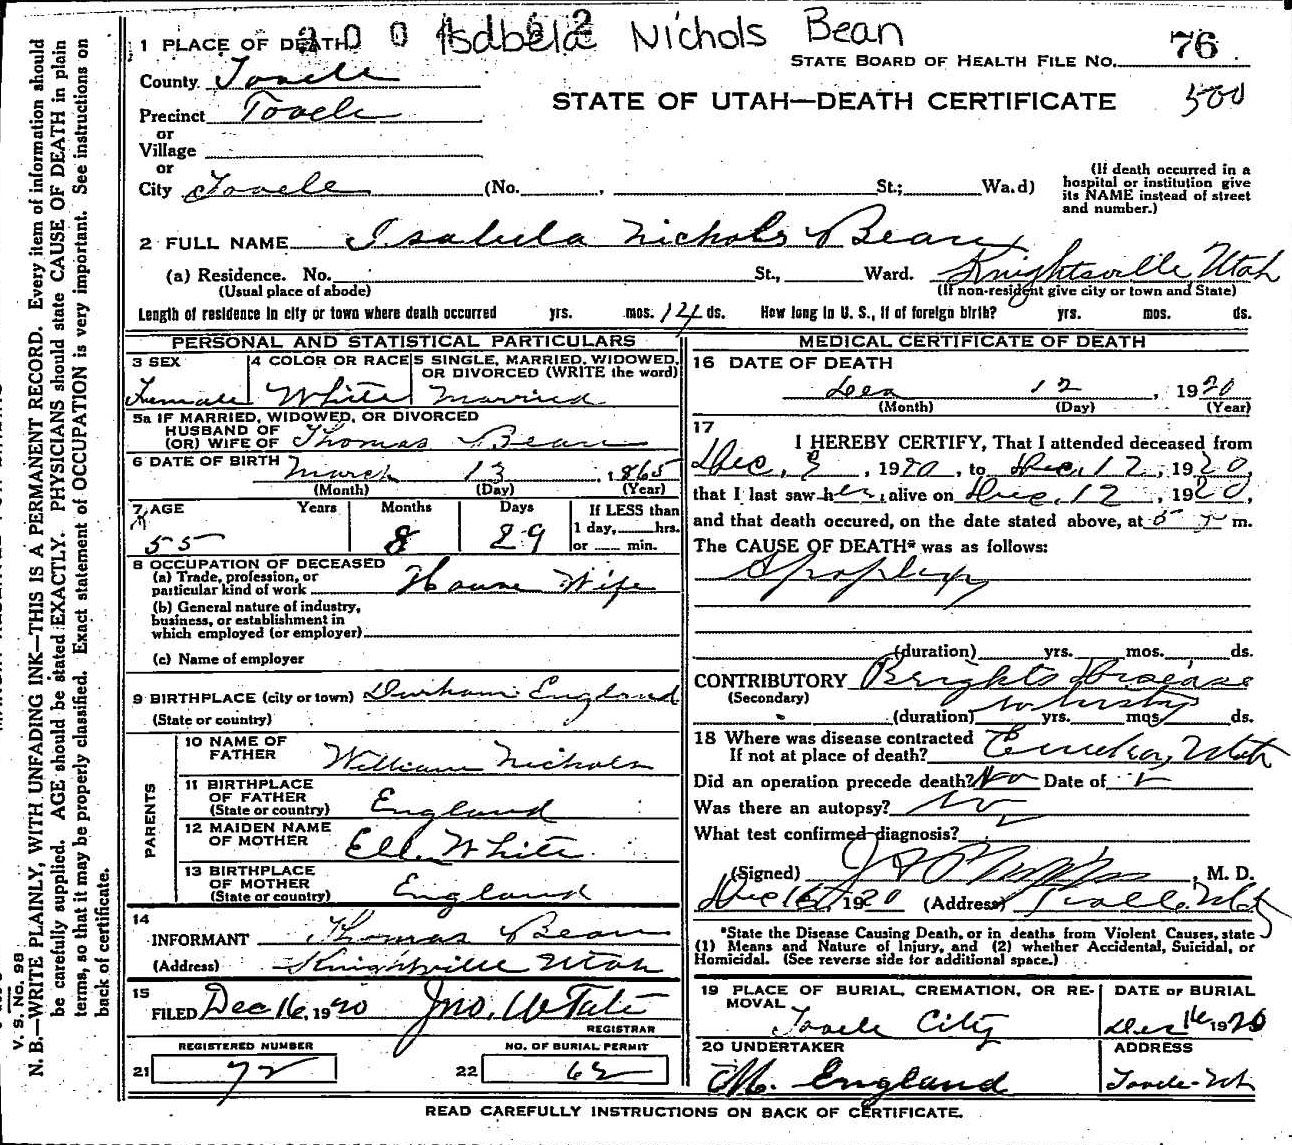 Isabela Nichols Bean
1 PLACE OF DEATH
STATE BOARD OF HEALTH FILE NO. 76
County Tooele
STATE OF UTAH—DEATH CERTIFICATE 500
Precinct Tooele
or
Village
or
City Tooele (No. , St.; Wa.d)
(If death occurred in a hospital or institution give its NAME instead of street and number.)
2 FULL NAME Isabela Nichols Bean
(a) Residence. No. St., Ward. Knightsville, Utah
(Usual place of abode) (If non-resident give city or town and State)
Length of residence in city or town where death occurred yrs. mos. 14 ds. How long in U. S., if of foreign birth? yrs. mos. ds.
PERSONAL AND STATISTICAL PARTICULARS
3 SEX
Female
4 COLOR OR RACE
White
5 SINGLE, MARRIED, WIDOWED, OR DIVORCED (WRITE the word)
Married
5a IF MARRIED, WIDOWED, OR DIVORCED
HUSBAND OF
(OR) WIFE OF Thomas Bean
6 DATE OF BIRTH March 13, 1865
(Month) (Day) (Year)
7 AGE Years Months Days If LESS than
1 day, hrs.
55 8 29 or min.
8 OCCUPATION OF DECEASED
(a) Trade, profession, or
particular kind of work House Wife
(b) General nature of industry,
business, or establishment in
which employed (or employer)
(c) Name of employer
9 BIRTHPLACE (city or town) Durham England
(State or country)
PARENTS
10 NAME OF
FATHER William Nichols
11 BIRTHPLACE
OF FATHER
(State or country) England
12 MAIDEN NAME
OF MOTHER Ell. White
13 BIRTHPLACE
OF MOTHER
(State or country) England
14
INFORMANT Thomas Bean
(Address) Knightville Utah
15
FILED Dec 16, 1920 Jno. W Tate
REGISTRAR
REGISTERED NUMBER NO. OF BURIAL PERMIT
21 72 22 62
MEDICAL CERTIFICATE OF DEATH
16 DATE OF DEATH
Dec 12, 1920
(Month) (Day) (Year)
17
I HEREBY CERTIFY, That I attended deceased from
Dec. , 1920, to Dec. 12, 1920,
that I last saw her alive on Dec. 12, 1920,
and that death occured, on the date stated above, at 5 m.
The CAUSE OF DEATH* was as follows:
Apoplexy
(duration) yrs. mos. ds.
CONTRIBUTORY Brights Disease
(Secondary)
(duration) yrs. mos. ds.
18 Where was disease contracted
If not at place of death? Eureka, Utah
Did an operation precede death? No Date of
Was there an autopsy? No
What test confirmed diagnosis?
(Signed) , M. D.
Dec 16, 1920 (Address) Tooele, Utah
*State the Disease Causing Death, or in deaths from Violent Causes, state
(1) Means and Nature of Injury, and (2) whether Accidental, Suicidal, or
Homicidal. (See reverse side for additional space.)
19 PLACE OF BURIAL, CREMATION, OR RE-
MOVAL
Tooele City
DATE OF BURIAL
Dec 16 1920
20 UNDERTAKER
M. England
ADDRESS
Tooele Ut
READ CAREFULLY INSTRUCTIONS ON BACK OF CERTIFICATE.
V. S. No. 98
N. B.—WRITE PLAINLY, WITH UNFADING INK—THIS IS A PERMANENT RECORD. Every item of information should
be carefully supplied. AGE should be stated EXACTLY. PHYSICIANS should state CAUSE OF DEATH in plain
terms, so that it may be properly classified. Exact statement of OCCUPATION is very important. See instructions on
back of certificate.